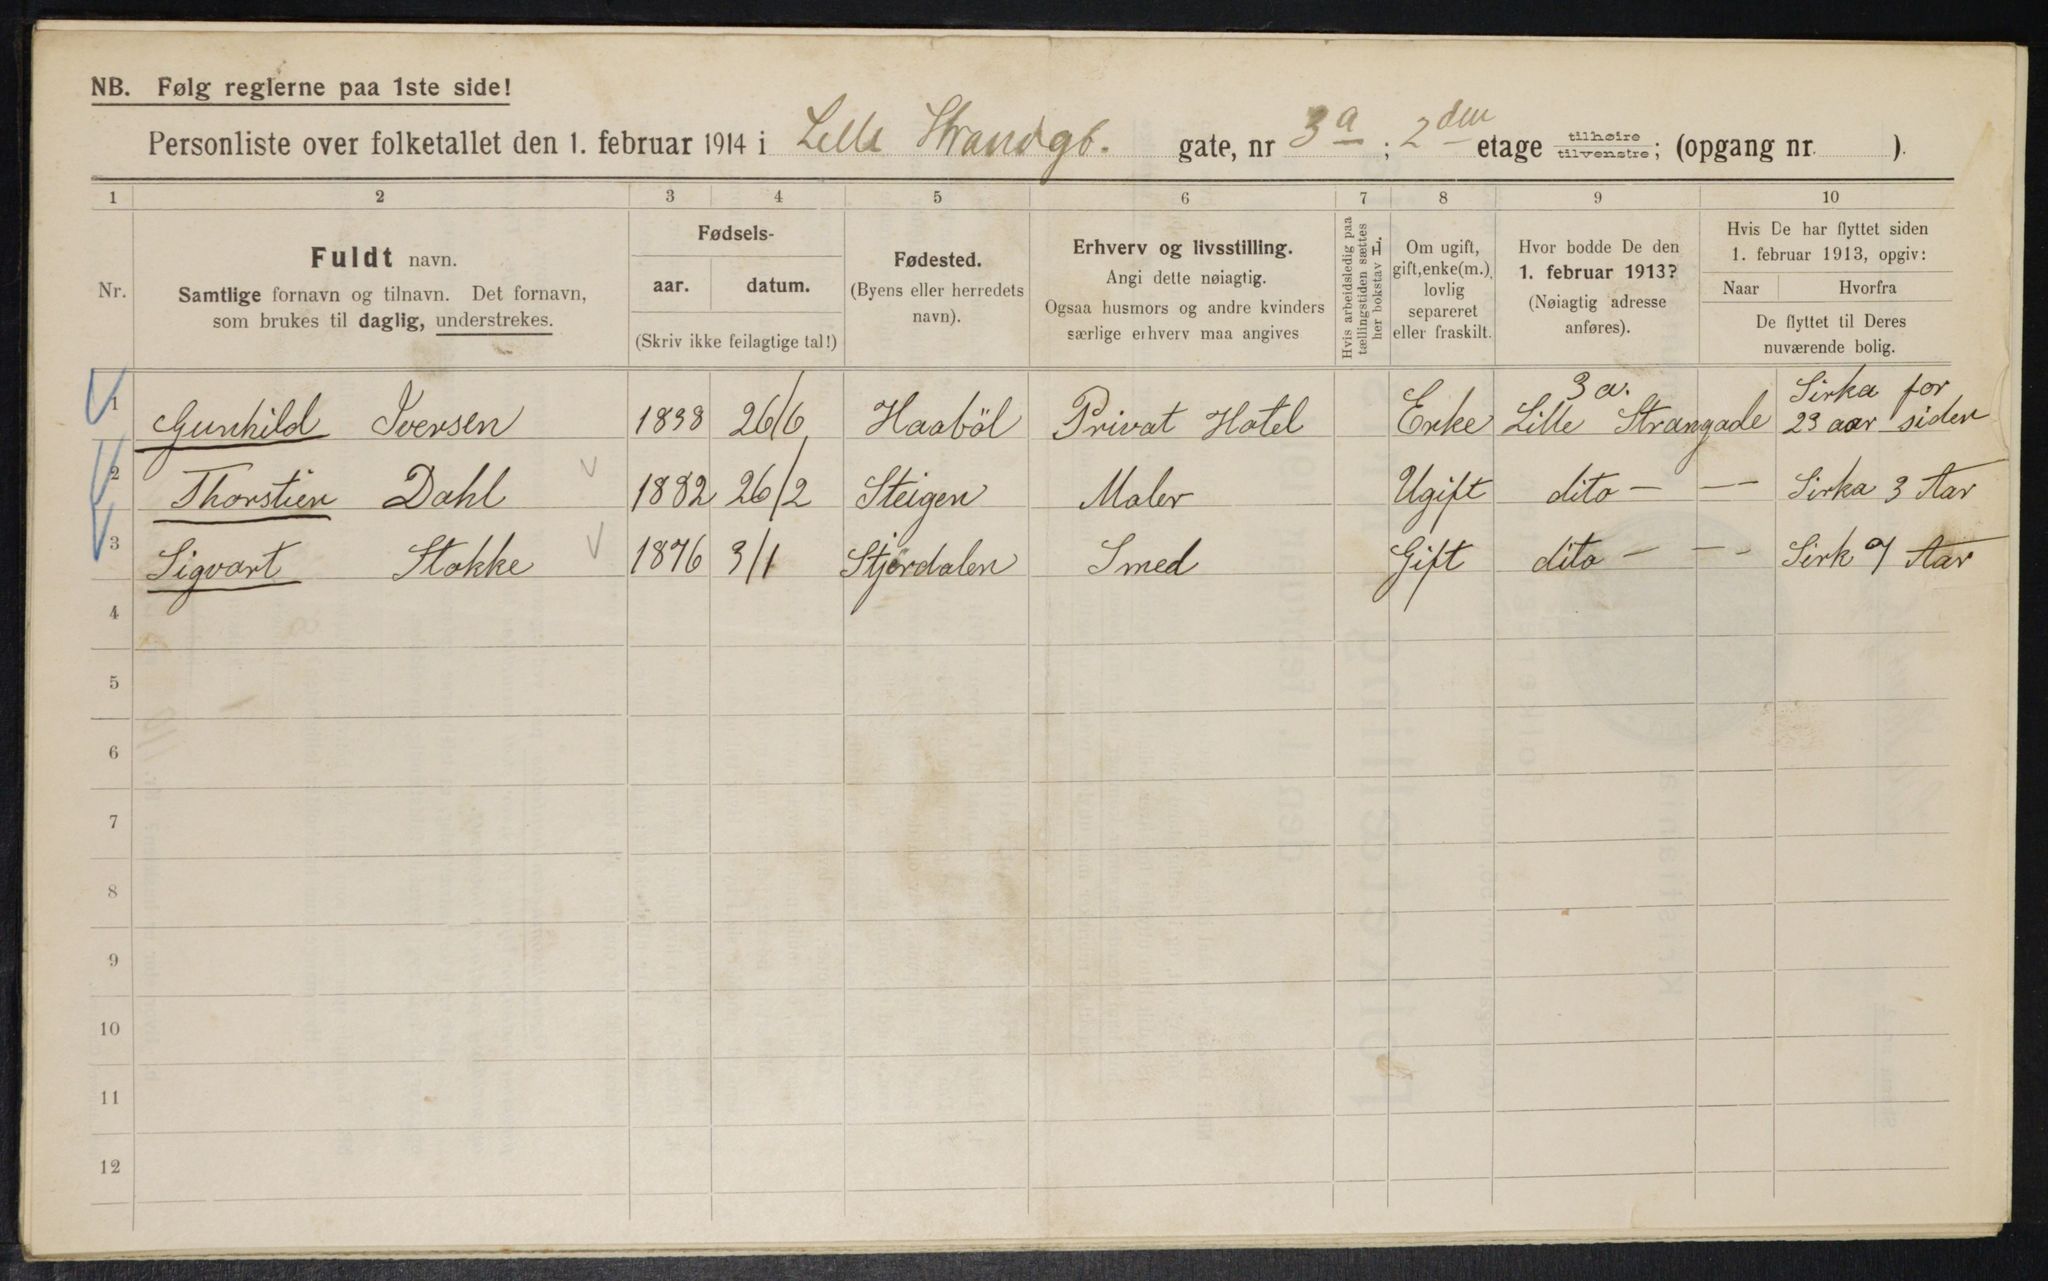 NB. Følg reglerne paa 1ste side!
Personliste over folketallet den 1. februar 1914 i Lelle Strandgt. gate, nr 3a; 2den etage tilhøire/tilvenstre; (opgang nr. ).
1 2 3 4 5 6 7 8 9 10
Nr.
Fuldt navn.
Samtlige fornavn og tilnavn. Det fornavn,
som brukes til daglig, understrekes.
Fødsels-
aar. datum.
(Skriv ikke feilagtige tal!)
Fødested.
(Byens eller herredets
navn).
Erhverv og livsstilling.
Angi dette nøiagtig.
Ogsaa husmors og andre kvinders
særlige erhverv maa angives
Hvis arbeidsledig paa
tællingstiden sættes
her bokstav L.
Om ugift,
gift, enke(m.),
lovlig
separeret
eller fraskilt.
Hvor bodde De den
1. februar 1913?
(Nøiagtig adresse
anføres).
Hvis De har flyttet siden
1. februar 1913, opgiv:
Naar Hvorfra
De flyttet til Deres
nuværende bolig.
1 Gunhild Iversen 1838 26/6 Haaböl Privat Hotel Enke Lille Strangade 3a. Sirka for
23 aar siden
2 Thorstien Dahl 1882 26/2 Steigen Maler Ugift dito — — Sirka 3 Aar
3 Sigvart Stokke 1876 3/1 Stjørdalen Smed Gift dito — — Sirka 7 Aar
4
5
6
7
8
9
10
11
12